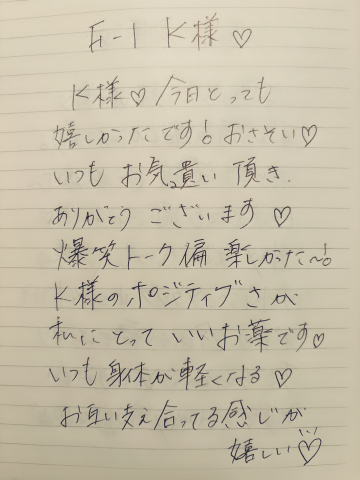 E-1 K様♡
K様♡今日とっても
嬉しかったです！おさそい♡
いつもお気遣い頂き
ありがとうございます♡
爆笑トーク偏楽しかった〜！
K様のポジティブさが
私にとっていいお薬です♡
いつも身体が軽くなる♡
お互い支え合ってる感じが
嬉しい♡